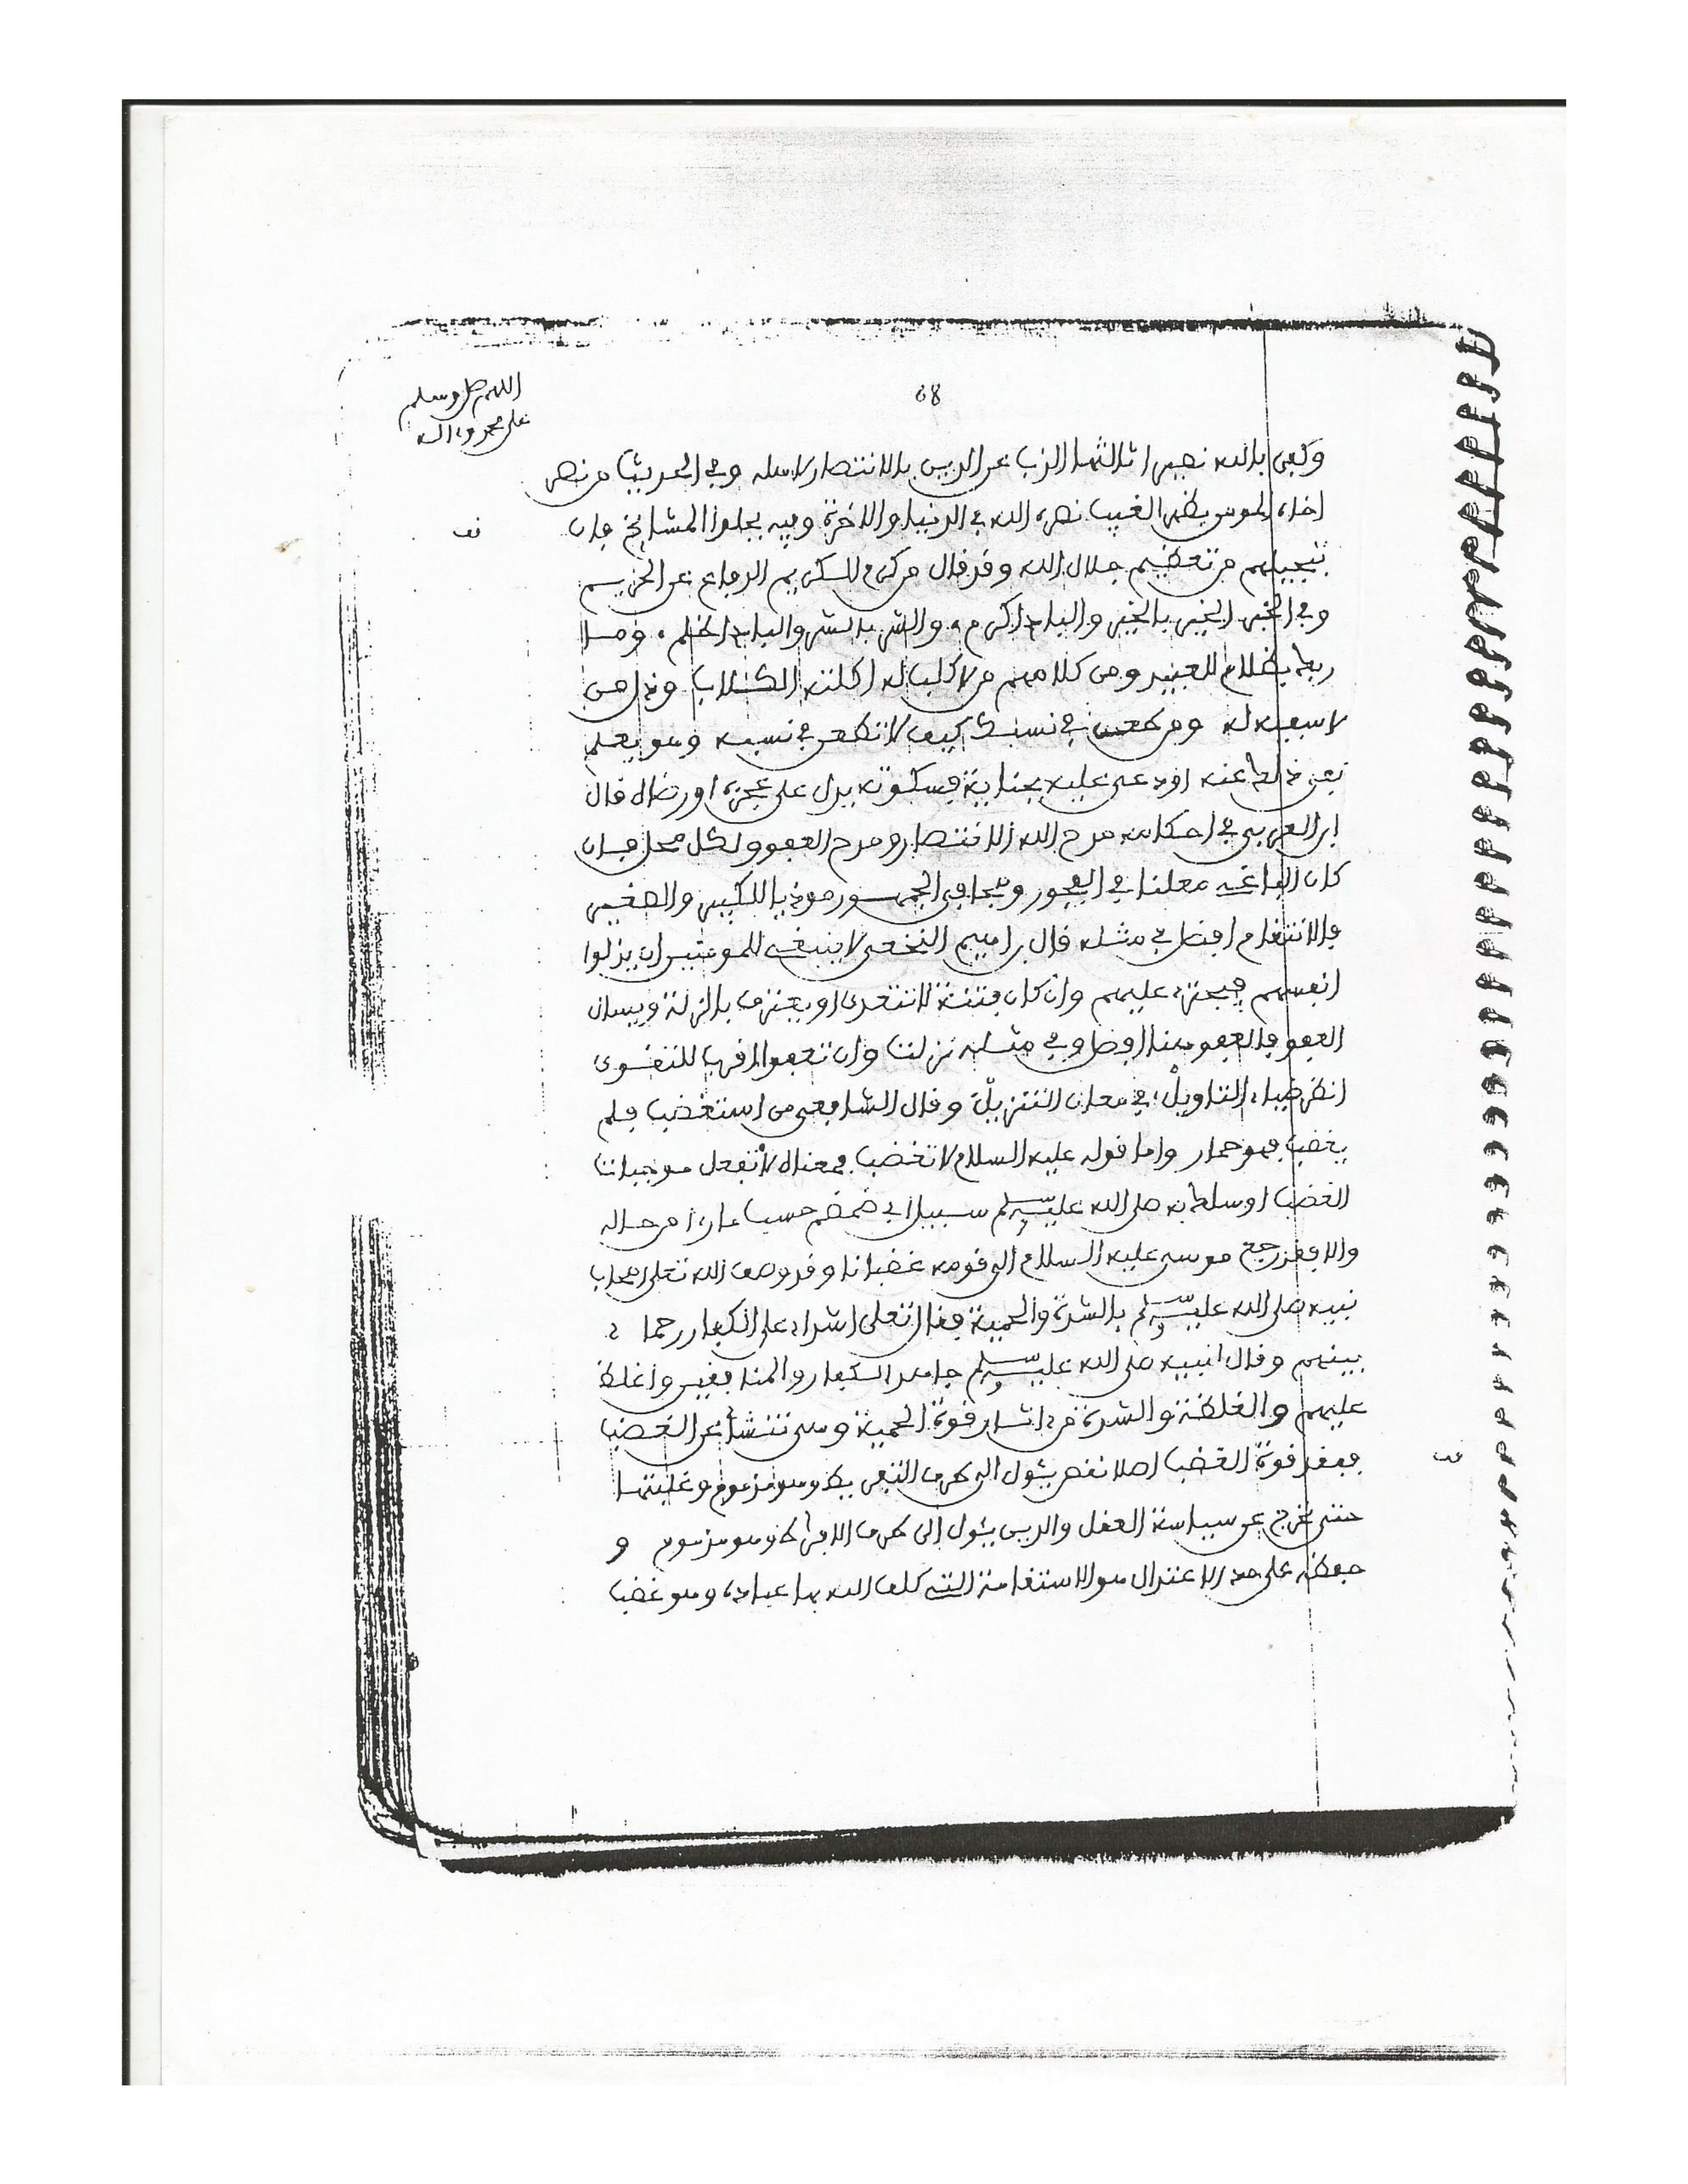 68
اللهم صل وسلم
على محمد وءاله
وكفى بالله نصيرا ثالثها الذب عن الدين بالانتصار لاهله وفي الحديث من نصر
اخاه المومن بظهر الغيب نصره الله في الدنيا والاخرة وفيه بجلوا المشايخ فان
تبجيلهم من تعظيم جلال الله وقد قال من كرم الكريم الدفاع عن الحريم
وفي الخبر الخير بالخير والبادئ اكرم، والشر بالشر والبادئ اظلم، وما
ربك بظلام للعبيد ومن كلامهم من لا كلب له اكلته الكلاب وذل من
لا سفيه له ومن طعن في نسبك كيف لا تطعن في نسبه وهو يعلم
نفي ذلك عنه او ادعى عليه بجناية فسكوته يدل على عجزه او رضاه قال
ابن العربي في احكامه مدح الله الانتصار ومدح العفو ولكل محل فان
كان الباغي معلنا في الفجور وقحا في الجمهور موذيا للكبير والصغير
فالانتقام افضل في مثله قال براهيم النخعي لا ينبغي للمومنين ان يذلوا
انفسهم فيجترء عليهم وان كان فتنة لا تتعدى او يعترف بالزلة ويسال
العفو فالعفو هنا افضل وفي مثله نزلت وان تعفوا اقرب للتقوى
انظر ضياء التاويل، في معان التنزيل وقال الشافعي من استغضب فلم
يغضب فهو حمار واما قوله عليه السلام لا تغضب فمعناه لا تفعل موجبات
الغضب او سلك به صلى الله عليه وسلم سبيل ابي ضمضم حسب ما رءا من حاله
والا فقد رجع موسى عليه السلام الى قومه غضبانا وقد وصف الله تعلى اصحاب
نبيه صلى الله عليه وسلم بالشدة والحمية فقال تعلى اشداء على الكفار رحماء
بينهم وقال لنبيه صلى الله عليه وسلم جاهد الكفار والمنافقين واغلظ
عليهم والغلظة والشدة من ءاثار قوة الحمية وهي تنشأ عن الغضب
ففقد قوة الغضب اصلا نقص يئول الى طرف التفريط وهو مذموم وغلبتها
حتى تخرج عن سياسة العقل والدين يئول الى طرف الافراط وهو مذموم و
حفظه على حد الاعتدال هو الاستقامة التي كلف الله بها عباده وهو غضب